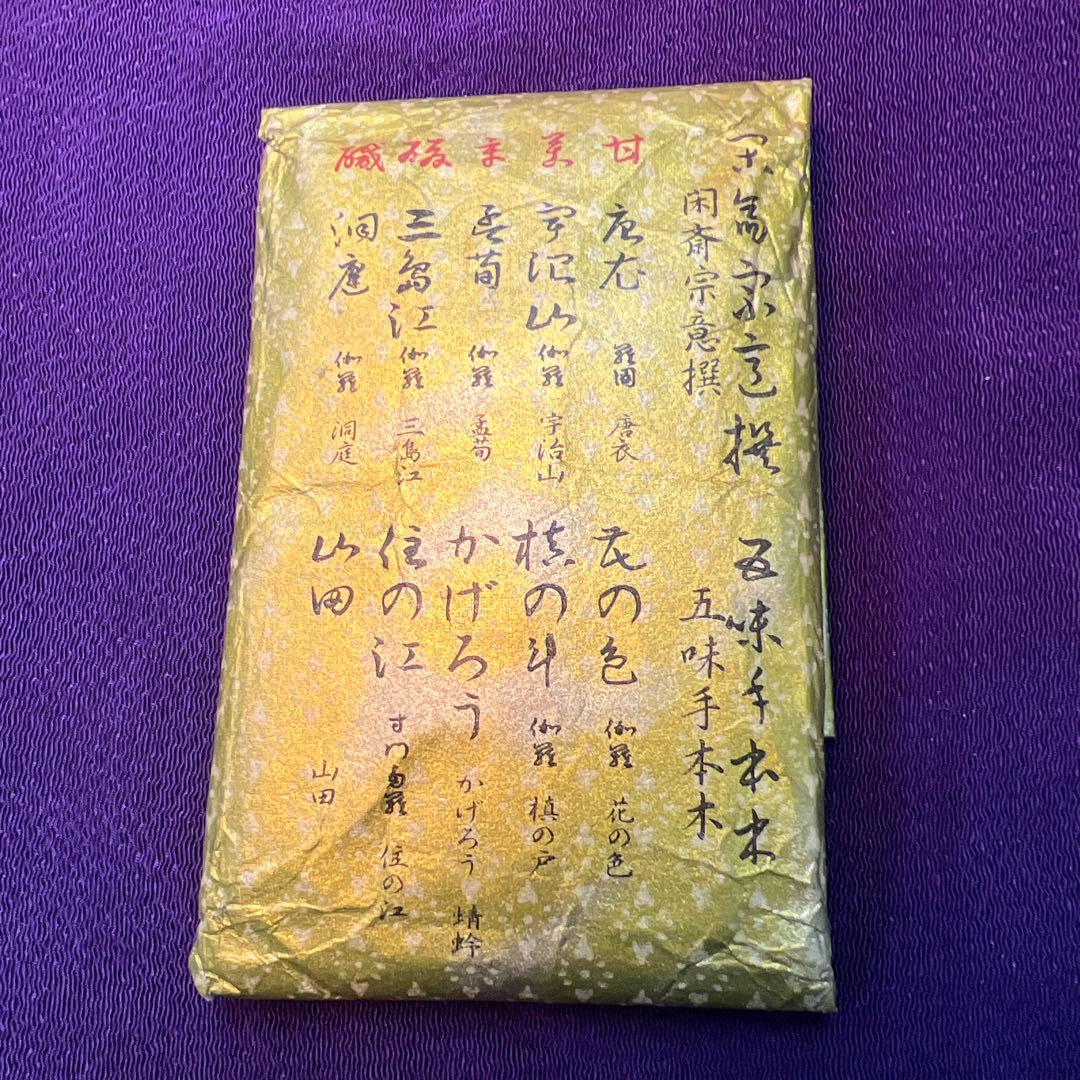 閑斎宗意撰 五味手本木
閑斎宗意撰 五味手本木
甘 苦 辛 酸 鹹
唐衣 羅国 唐衣
宇治山 伽羅 宇治山
孟荀 伽羅 孟荀
三島江 伽羅 三島江
洞庭 伽羅 洞庭
花の色 伽羅 花の色
槙の戸 伽羅 槙の戸
かげろう かげろう 蜻蛉
住の江 寸門多羅 住の江
山田 山田